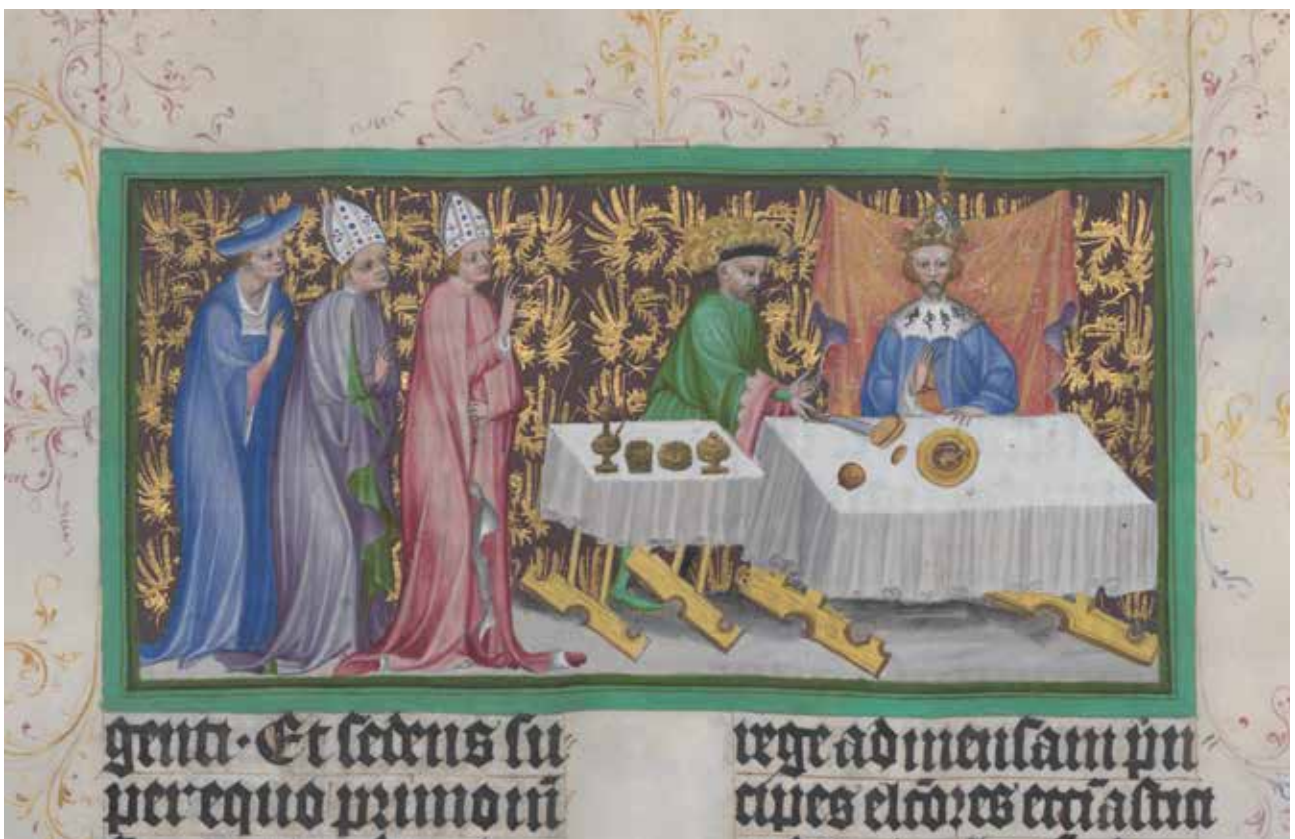 genti · Et sedens su
per equo primo in
rege ad mensam pri
cipes elcōres ecciastici